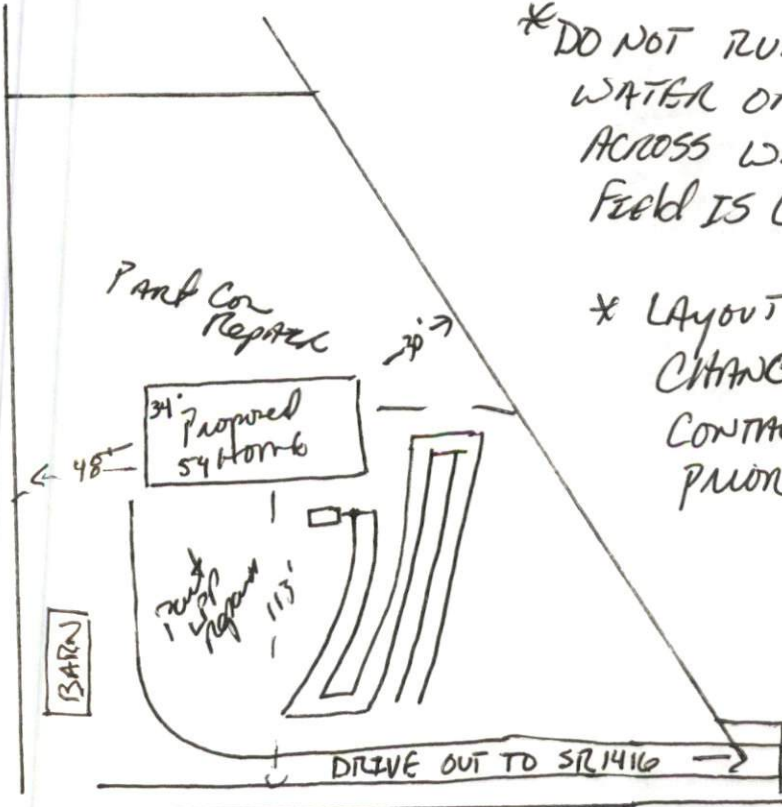 *DO NOT RU
WATER O
ACROSS W
FIEld IS
* LAYOUT
CHANG
CONTA
PRIOR
Repair
30'
34' Proposed
54 Home
← 48'
113'
BARN
DRIVE OUT TO SR1416 →